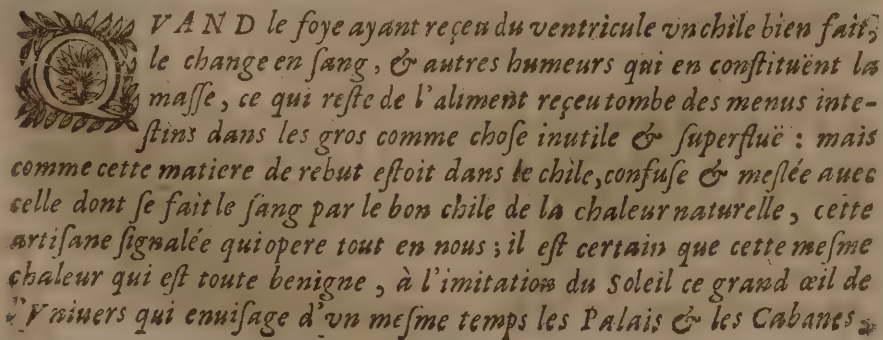 QVAND le foye ayant reçeu du ventricule vn chile bien fait,
le change en ſang, & autres humeurs qui en conſtituënt la
maſſe, ce qui reſte de l'aliment reçeu tombe des menus inte-
ſtins dans les gros comme choſe inutile & ſuperfluë : mais
comme cette matiere de rebut eſtoit dans le chile, confuſe & meſlée auec
celle dont ſe fait le ſang par le bon chile de la chaleur naturelle, cette
artiſane ſignalée qui opere tout en nous ; il eſt certain que cette meſme
chaleur qui eſt toute benigne, à l'imitation du Soleil ce grand œil de
l'Vniuers qui enuiſage d'vn meſme temps les Palais & les Cabanes,